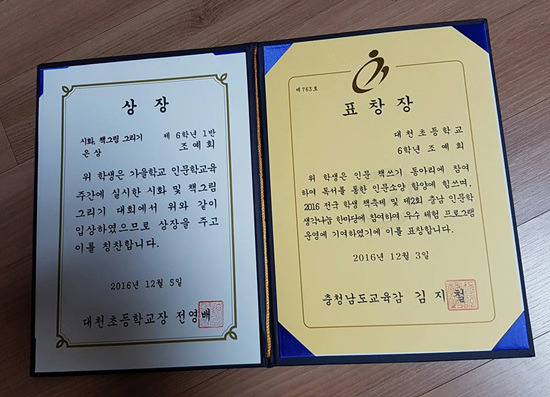 상장
시화, 책그림 그리기 제 6학년 1반
은상 조예희
위 학생은 가을학교 인문학교육
주간에 실시한 시화 및 책그림
그리기 대회에서 위와 같이
입상하였으므로 상장을 주고
이를 칭찬합니다.
2016년 12월 5일
대천초등학교장 전영배
제 763호
표창장
대천초등학교
6학년 조예희
위 학생은 인문 책쓰기 동아리에 참여
하여 독서를 통한 인문소양 함양에 힘쓰며,
2016 전국 학생 책축제 및 제2회 충남 인문학
생각나눔 한마당에 참여하여 우수 체험 프로그램
운영에 기여하였기에 이를 표창합니다.
2016년 12월 3일
충청남도교육감 김지철